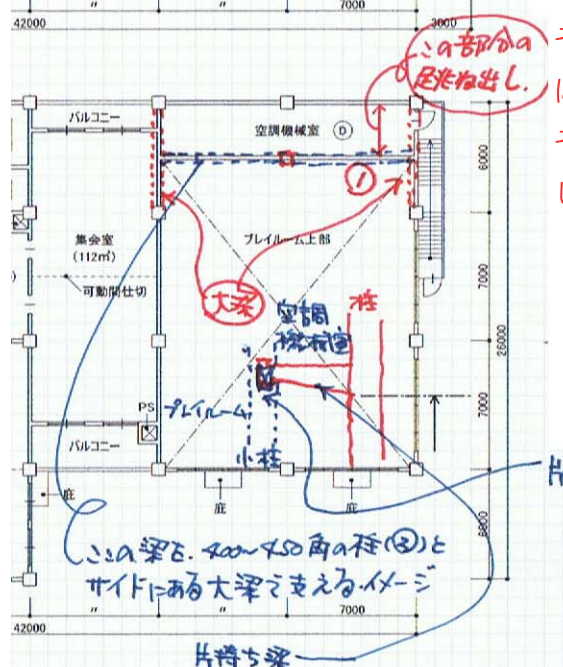 42000
〃
〃
7000
3000
この部分の
跳ね出し.
バルコニー
空調機械室 D
①
6000
集会室
(112㎡)
可動間仕切
プレイルーム上部
7000
大梁
空調
機械室
柱
26000
PS
プレイルーム
小柱
バルコニー
7000
庇
庇
庇
6000
この梁を.400~450角の柱(②)と
サイドにある大梁で支えるイメージ
42000
〃
〃
7000
片持ち梁